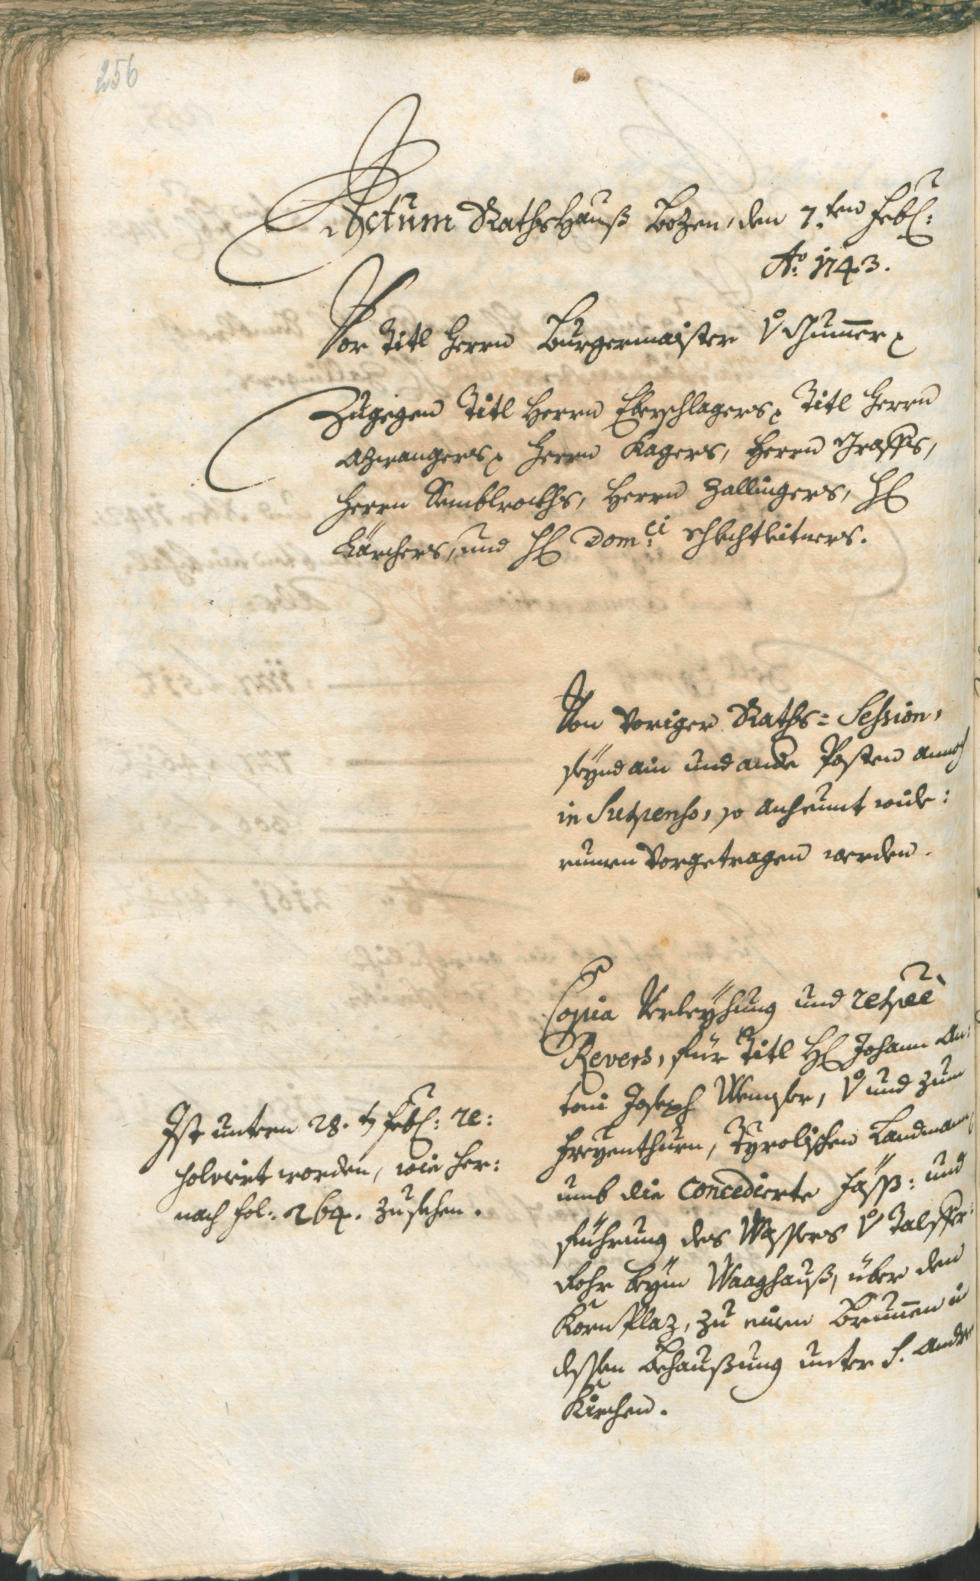 256
Actum Rathshauß Bozen, den 7.ten Feb:
Ao. 1743.
Vor Titl Herrn Burgermaister v
Zugegen Titl Herrn Eberschlagers, Titl Herrn
Azwangers, Herrn Kagers, Herrn Graffs,
Herrn Semblrockhs, Herrn Zallingers, H
Kärchers, und H Dom:ci Schlechtleitners.
Von Voriger Raths=Session,
seynd ain und ande Posten annoch
in Suspenso, so anheunt wide:
rumen Vorgetragen werden.
Copia Verleyhung und respve
Revers, für Titl H Johann An:
toni Joseph Wenser, v und zum
Freyenthurn, Tyrolischen Landmann,
umb die concedierte Fass: und
führung des Wassers v Talffer:
Rohr beym Waaghauß, über den
Korn Plaz, zu einem Brunnen in
dessen Behaußung unter S. Andre
Kirchen.
Ist untern 28. t Feb: re:
solviert worden, wie her:
nach fol: 264. zusehen.